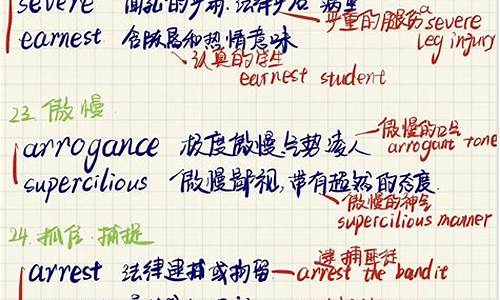 severe
严重的腿伤 a severe
leg injury
earnest 含既吊和热情意味
认真的学生
earnest student
23. 傲慢
arrogance 极度傲慢.气势凌人
傲慢的口气
arrogant tone
supercilious 傲慢鄙视,带有超然的态度
傲慢的神气
supercilious manner
24. 抓住.捕捉
arrest 法律逮捕或拘留
逮捕匪徒
arrest the bandit